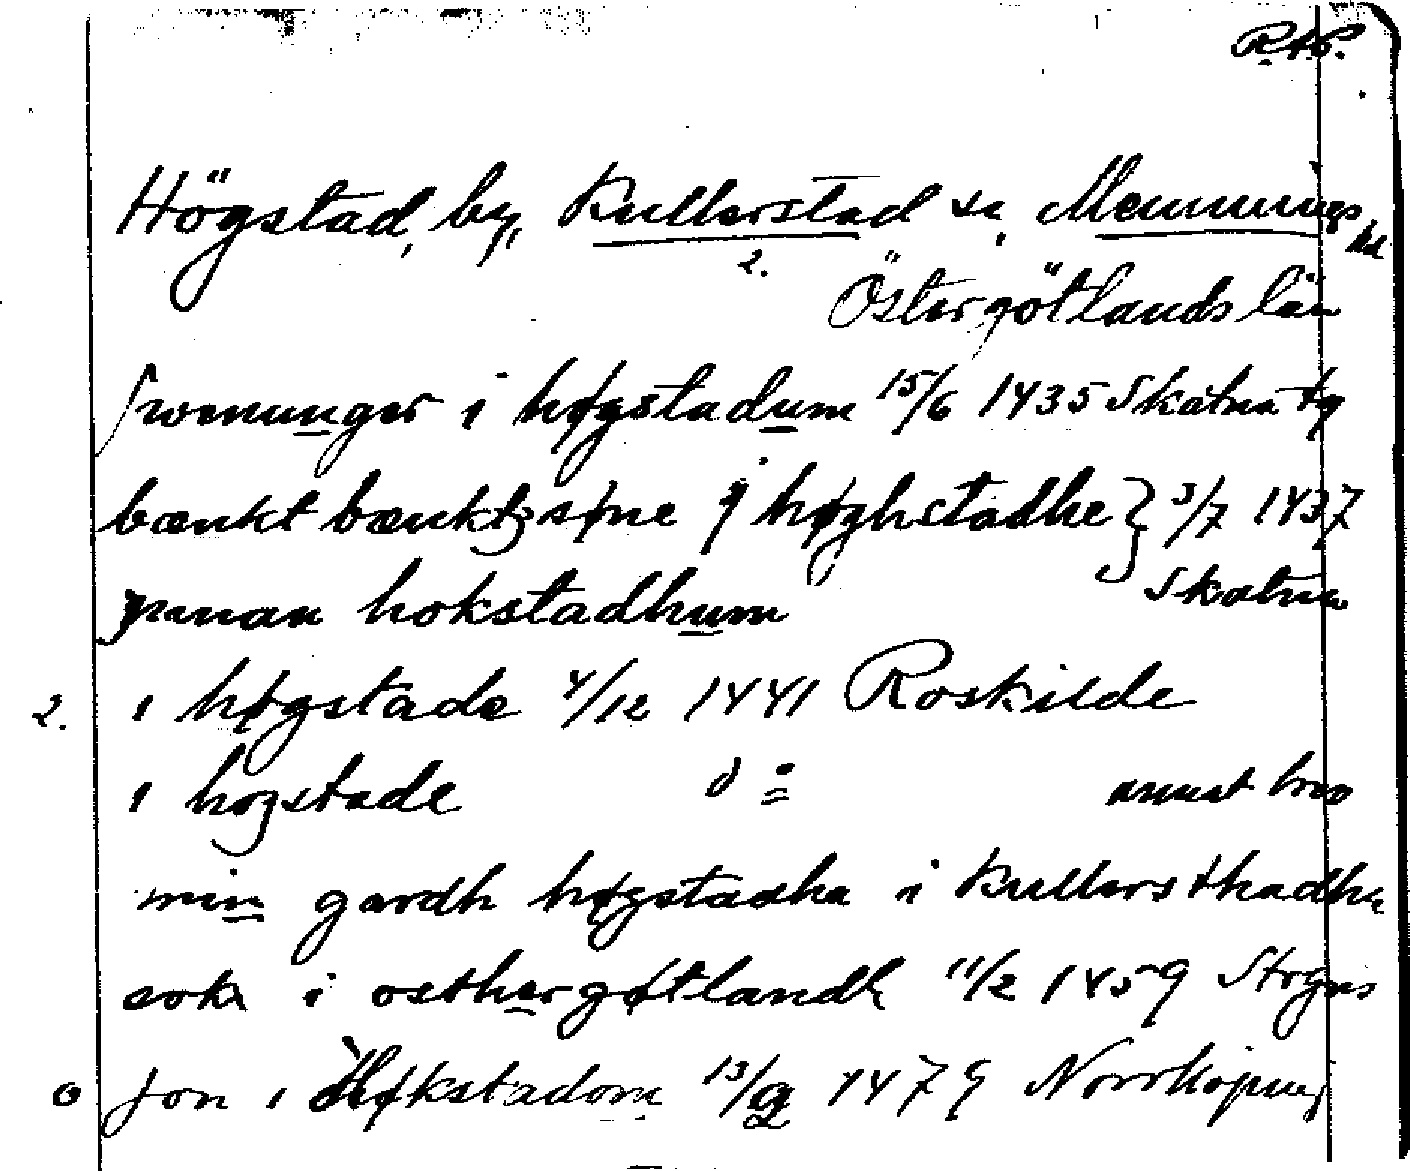 R.A.P.
Högstad, by, Kullerstad sn, Memmings hd
2.
Östergötlands län
swenunger i høgstadum 15/6 1435 Skatna tg
bænkt bænktzsøne j høghstadhe } 3/7 1437
ynnan hokstadhum Skatna
2. i høgstade 4/12 1441 Roskilde
i hogstade d:o annat brev
min gardh høgstadha i kullersthadha
sokn i osthergøtlandh 11/2 1459 Strgns
0 Jon i Høkstadom 13/9 1479 Norrköping